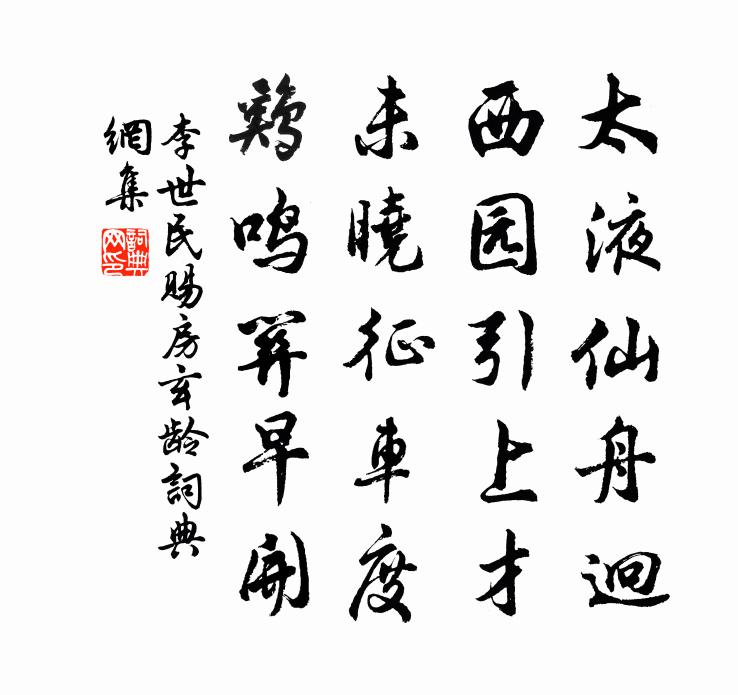 太液仙舟迥
西园引上才
未曉征車度
鷄鸣關早開
李世民賜房玄龄詞典
網集
詞典網印